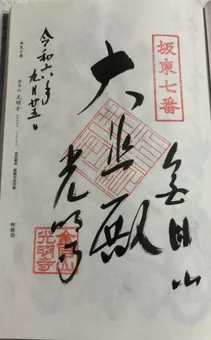 坂東七番
金目山
大悲殿
光明寺
令和六年
九月廿五日
金目山
光明寺